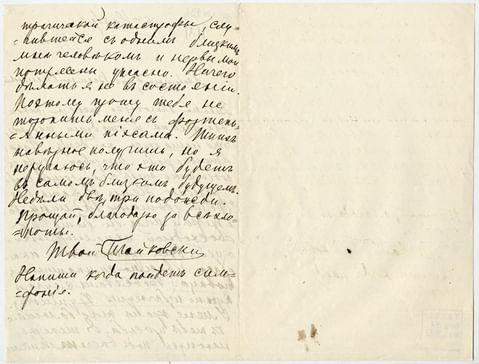 трагической катастрофы, слу-
=чившейся съ однимъ близкимъ
мнѣ человѣкомъ и нервы мои
потрясены ужасно. Ничего
дѣлать я не въ состояніи.
Поэтому прошу тебя не
торопить меня съ фортепь-
=янными пiэсами.
навѣрное получишь, но я
поручаюсь, что это будетъ
въ самомъ близкомъ будущемъ.
Недѣли двѣ, три подожди.
Прощай, благодарю за всѣ хло-
=поты.
Твой П. Чайковскій
Напиши когда пойдетъ сим-
=фонія.